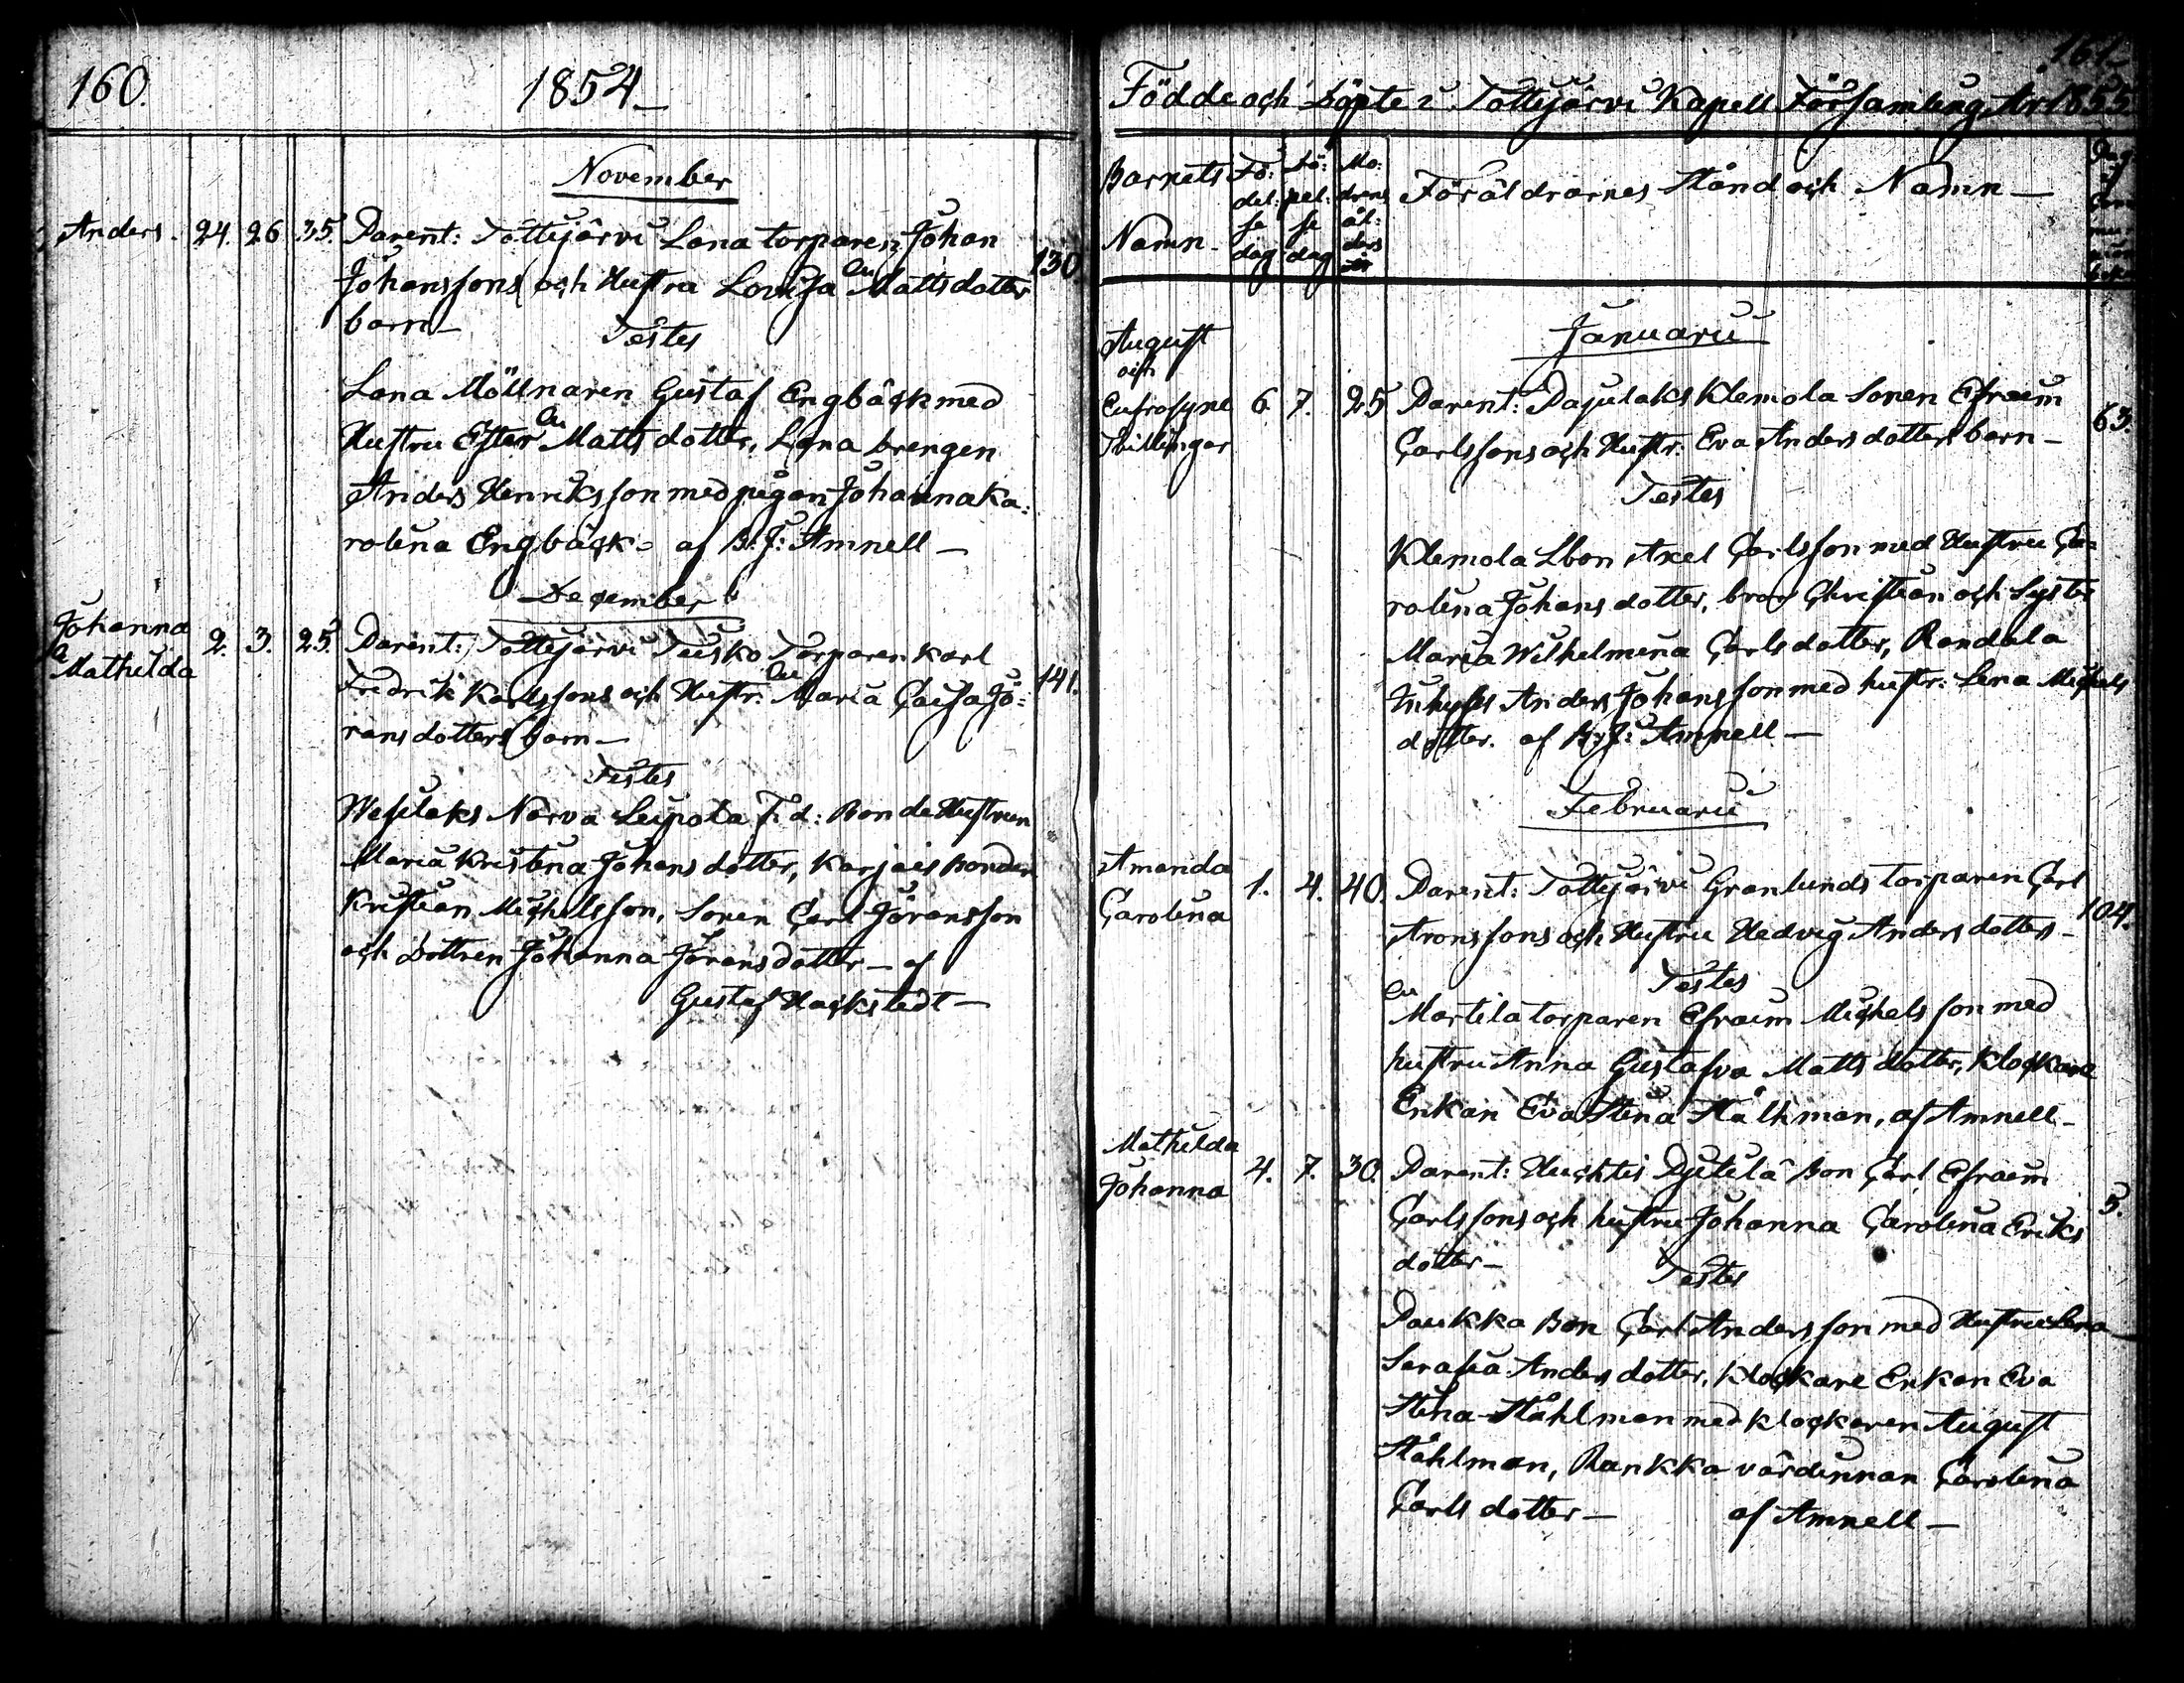 160.
1854_
November
Anders. 24. 26 35. Parent: Tottijärvi Lana torparen Johan
Johanssons och Hustru Lovisa Mattsdotter 130
barn_
Testes
Lana Möllnaren Gustaf Engbäck med
Hustru Ester Matts dotter, Lana drengen
Anders Henriksson med pigan Johanna Ka:
rolina Engbäck_ af B: J: Amnell_
December
Johanna
Mathilda 2. 3. 25. Parent: Tottijärvi Teisko Torparen Karl
Fredrik Karlssons och Hustr: Maria Caisa Jö: 141.
ransdotters barn_
Testes
Wesilaks Närva Leipola F. d: Bonde Hustrun
Maria Kristina Johans dotter, Karjais Bonden
Kristian Michelsson, Sonen Carl Jöransson
och Dottren Johanna Jörans dotter_ af
Gustaf Hackstedt_
161_
Födde och Döpte i Tottijärvi Kapell Församling År 1855
Barnets Namn_
Fö: del: se dag
Dö: pel: se dag
Mo: drens ål: ders år
Föräldrarnes Stånd och Namn_
Januarii
August
och
Eufrosyne 6. 7. 25 Parent: Pajulaks Klemola Sonen Efraim
Tvillingar Carlssons och Hustr: Eva Anders dotters barn_ 63.
Testes
Klemola Sbon Axel Carlsson med Hustru Ca:
rolina Johans dotter, bror Christian och Syster
Maria Wilhelmina Carls dotter, Randala
Inhyses Anders Johansson med hustr: Lena Michels
dotter. af B: J: Amnell_
Februarii
Amanda
Carolina 1. 4. 40. Parent: Tottijärvi Granlunds torparen Carl
Aronssons och Hustru Hedvig Anders dotters_ 104.
Testes
Martila torparen Efraim Michelsson med
hustru Anna Gustafva Matts dotter, Klockare
Enkan Eva Stina Stålhman, af Amnell_
Mathilda
Johanna 4. 7. 30. Parent: Huchtis Pytilä Bon Carl Efraim
Carlssons och hustru Johanna Carolina Eriks 5.
dotter_
Testes
Paukka Bon Carl Andersson med Hustru Lena
Serafia Anders dotter, Klockare Enkan Eva
Stina Ståhlman med klockaren August
Ståhlman, Rankka värdinnan Carolina
Carls dotter_ af Amnell_